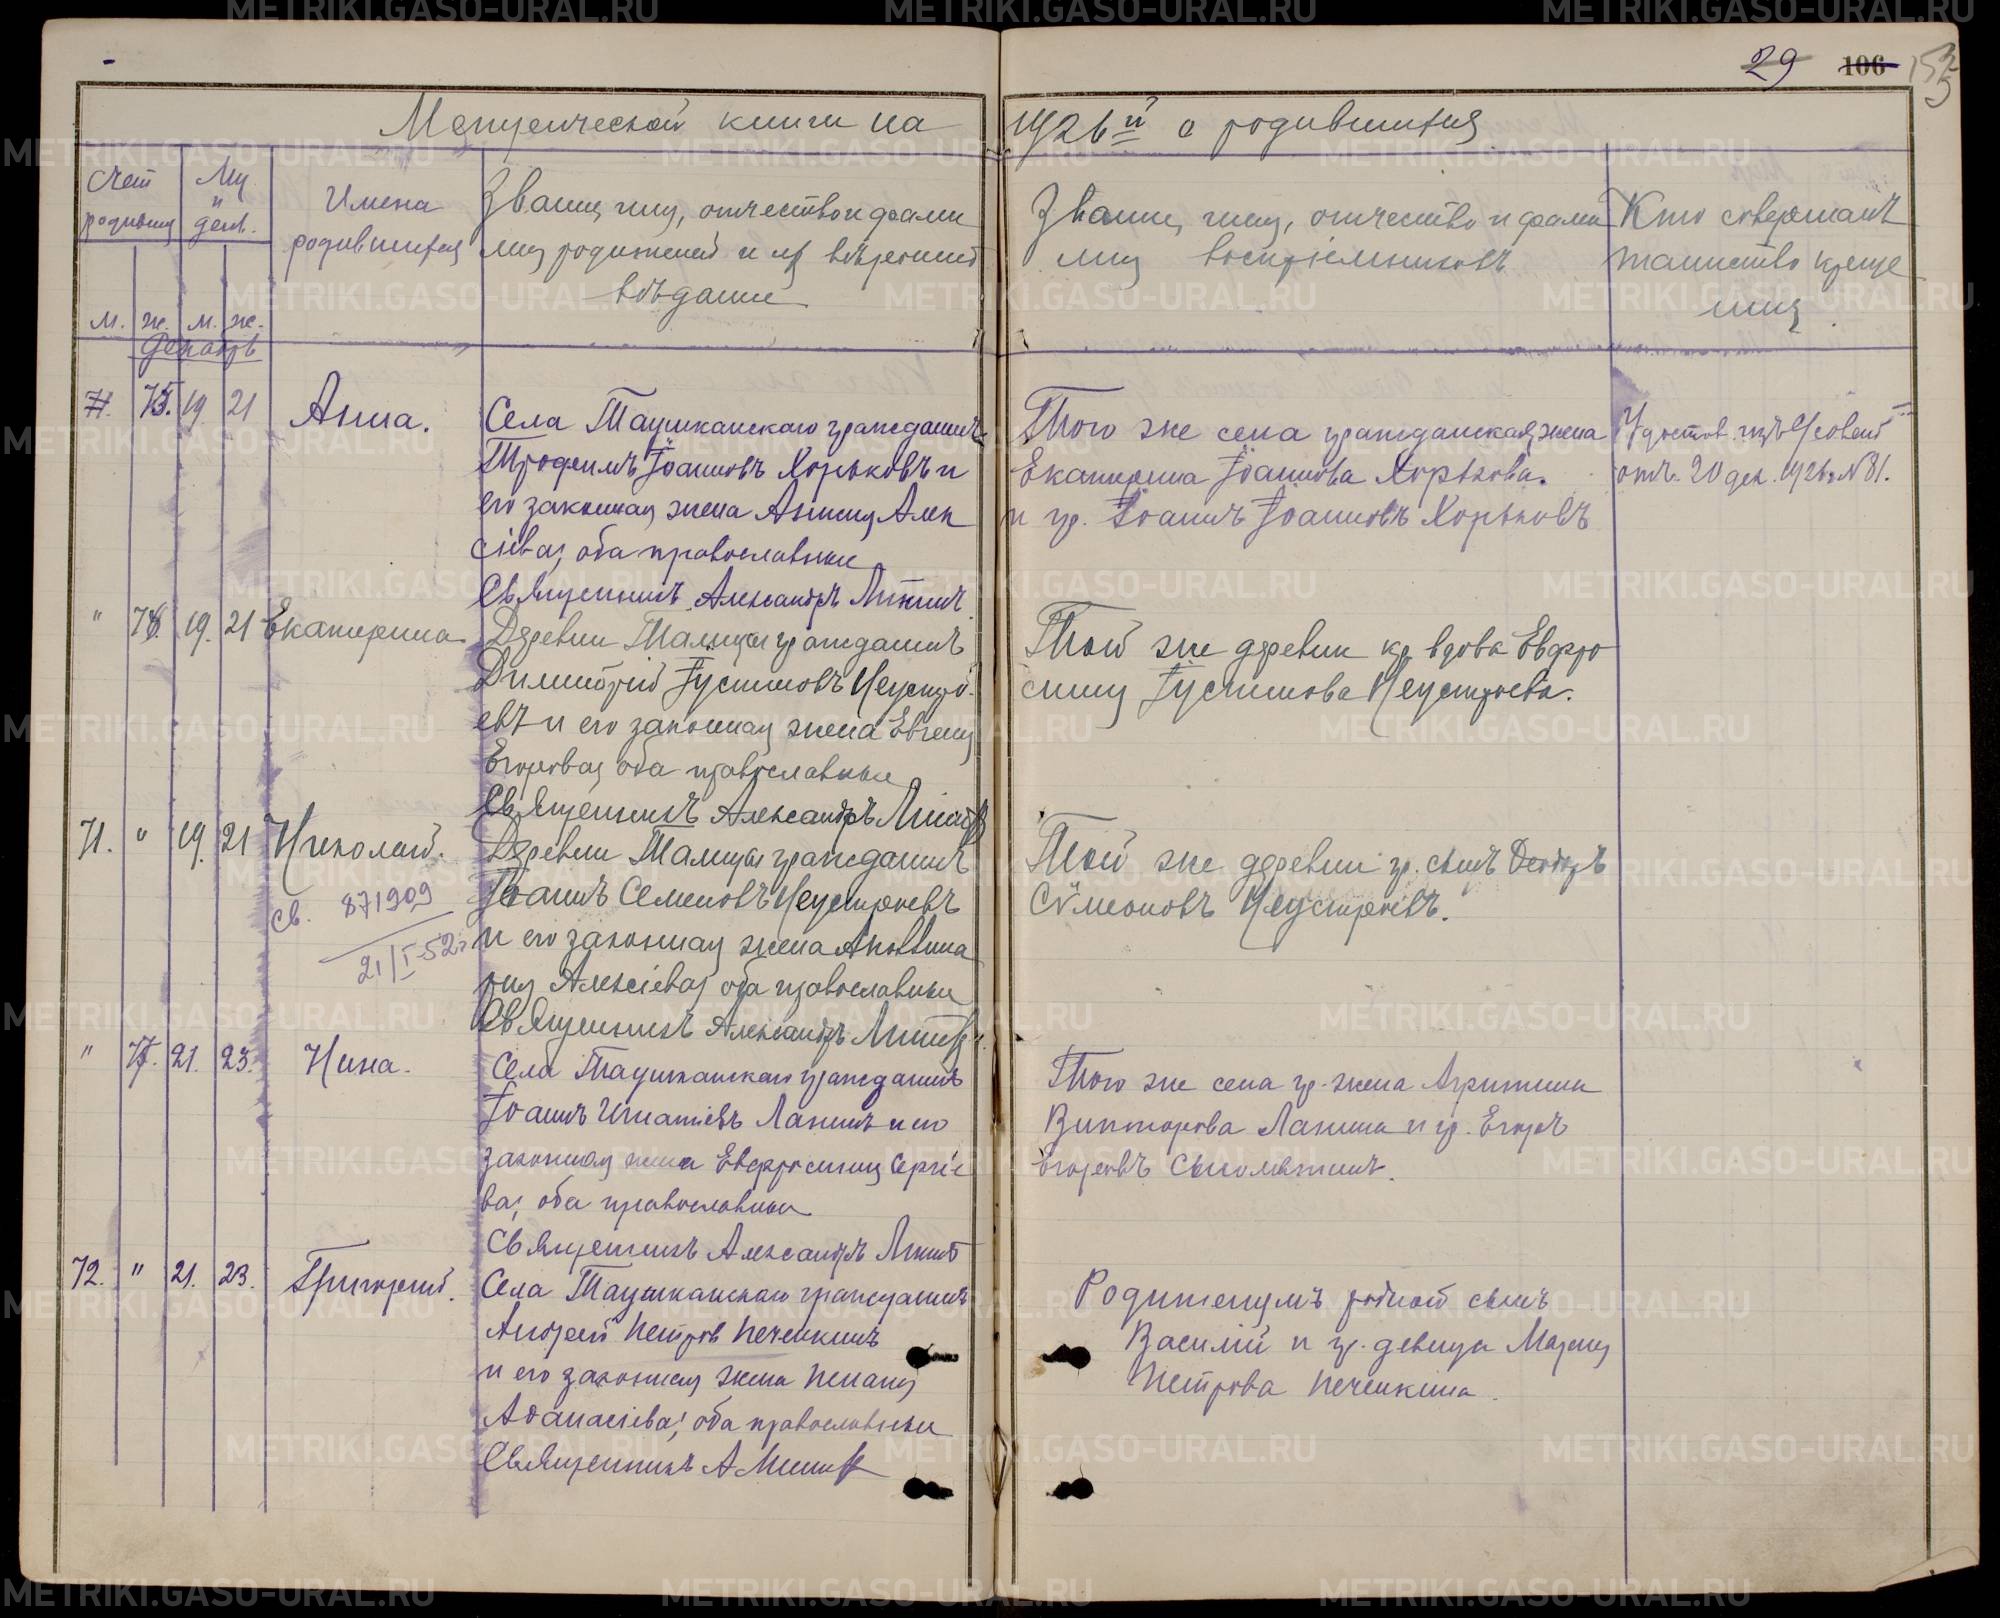 29 106
Метрической книги на 1926й о родившихся
Счет родивших Мц и день. Имена родившихся Звание, имя, отчество и фами
лия родителей и
Звание, имя, отчество и фами
лия воспріемниковъ
Кто совершалъ
таинство креще
ния
м. ж. м. ж.
Декабрь
75. 19 21 Анна.
Села Таушканскаго гражданинъ
Трофимъ Іоанновъ Хорьковъ и
его законная жена Алек
сіева, оба православные
Священникъ Александръ
Того же села гражданская жена
Екатерина Іоаннова Хорькова.
и гр. Іоаннъ Іоанновъ Хорьковъ
отъ 20 дек. 1926 г. № 81.
" 19. 21 Екатерина
Деревни Талицы гражданинъ
Димитрій Іустиновъ Неустро
евъ и его законная жена Евгенія
Егорова, оба православные
Священникъ Александръ
Той же деревни кр. вдова Евфро
синия Іустинова Неустроева.
71. " 19. 21 Николай.
св. 871909
21/I-52г
Деревни Талицы гражданинъ
Іоаннъ Семеновъ Неустроевъ
и его законная жена Аполлина
рия Алексіева, оба православные
Священникъ Александръ
Той же деревни гр. сынъ
Сѵмеоновъ Неустроевъ.
" 21. 23. Нина.
Села Таушканскаго гражданинъ
Іоаннъ Игнатіевъ Лапинъ и его
законная жена Евфросиния Сергіе
ва, оба православные
Священникъ Александръ
Того же села гр. жена Агрипина
Викторова Лапина и гр. Егоръ
Егоровъ
72. " 21. 23. Григорий.
Села Таушканскаго гражданинъ
Андрей Петров Печенкинъ
и его законная жена
Аѳанасіева, оба православные
Священникъ А.
Родителямъ родной сынъ
Василій и гр. девица Мария
Петрова Печенкина.
METRIKI.GASO-URAL.RU